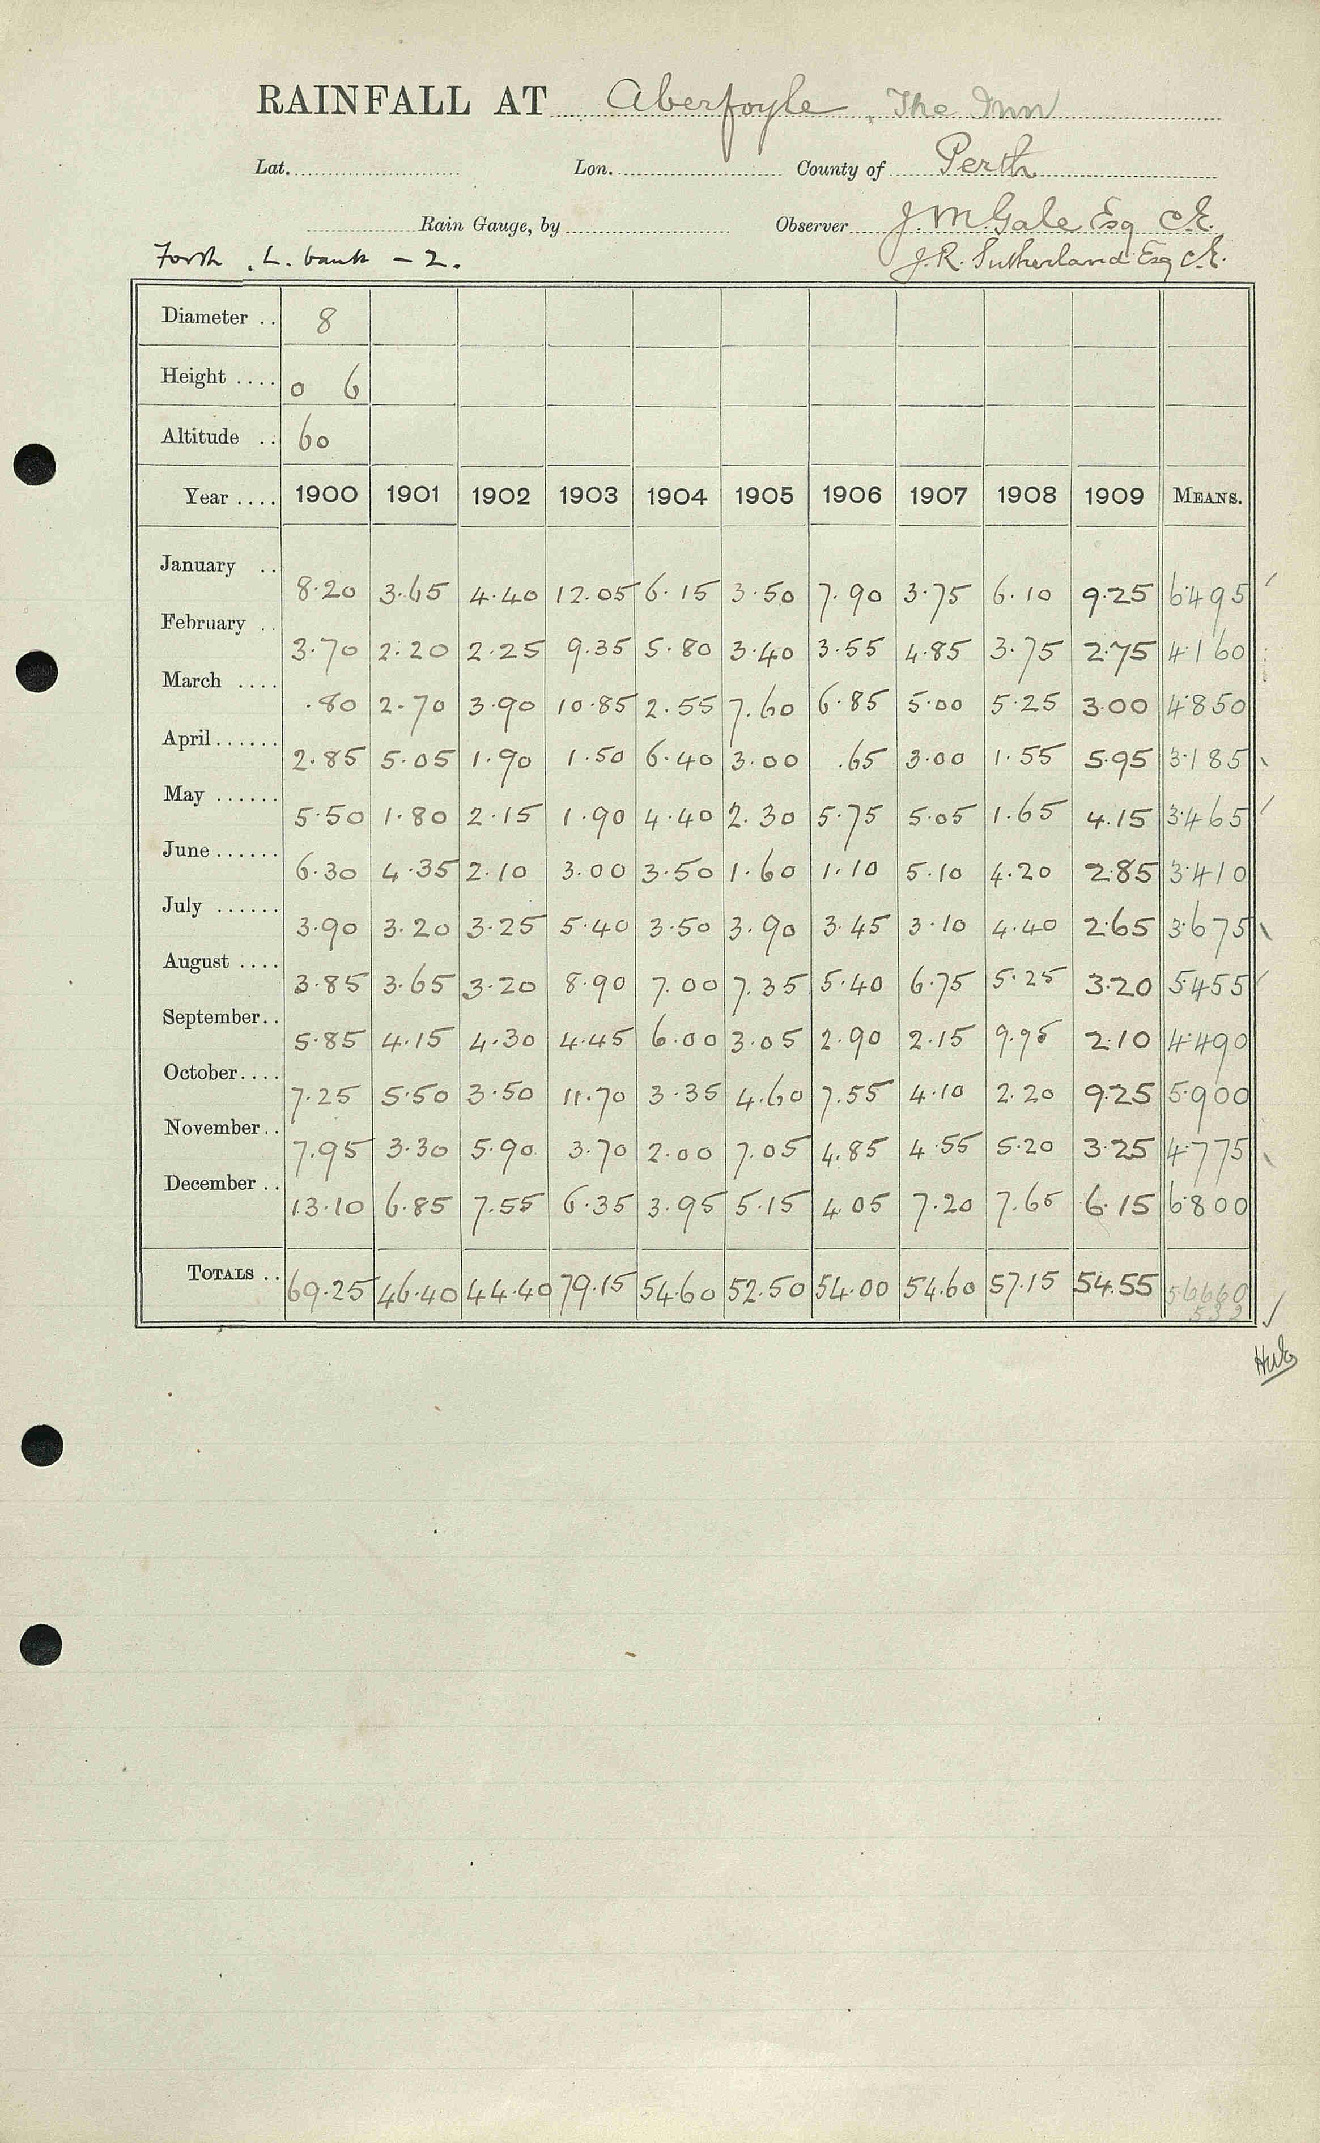 RAINFALL AT Aberfoyle, The Inn
Lat. Lon. County of Perth
Rain Gauge, by Observer J. M. Gale Esq C.E.
Forth . L. bank - 2. J. R. Sutherland Esq C.E.
Diameter .. 8
Height .... 0 6
Altitude .. 60
Year .... 1900 1901 1902 1903 1904 1905 1906 1907 1908 1909 MEANS.
January .. 8.20 3.65 4.40 12.05 6.15 3.50 7.90 3.75 6.10 9.25 6.495
February .. 3.70 2.20 2.25 9.35 5.80 3.40 3.55 4.85 3.75 2.75 4.160
March .... .80 2.70 3.90 10.85 2.55 7.60 6.85 5.00 5.25 3.00 4.850
April ...... 2.85 5.05 1.90 1.50 6.40 3.00 .65 3.00 1.55 5.95 3.185
May ...... 5.50 1.80 2.15 1.90 4.40 2.30 5.75 5.05 1.65 4.15 3.465
June ...... 6.30 4.35 2.10 3.00 3.50 1.60 1.10 5.10 4.20 2.85 3.410
July ...... 3.90 3.20 3.25 5.40 3.50 3.90 3.45 3.10 4.40 2.65 3.675
August .... 3.85 3.65 3.20 8.90 7.00 7.35 5.40 6.75 5.25 3.20 5.455
September .. 5.85 4.15 4.30 4.45 6.00 3.05 2.90 2.15 9.95 2.10 4.490
October .... 7.25 5.50 3.50 11.70 3.35 4.60 7.55 4.10 2.20 9.25 5.900
November .. 7.95 3.30 5.90 3.70 2.00 7.05 4.85 4.55 5.20 3.25 4.775
December .. 13.10 6.85 7.55 6.35 3.95 5.15 4.05 7.20 7.65 6.15 6.800
TOTALS .. 69.25 46.40 44.40 79.15 54.60 52.50 54.00 54.60 57.15 54.55 56660